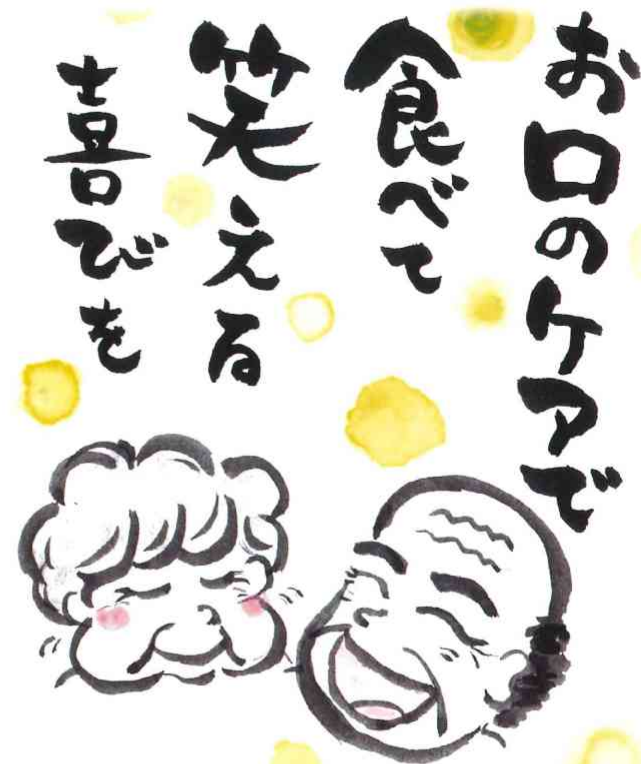 お口のケアで
食べて
笑える
喜びを